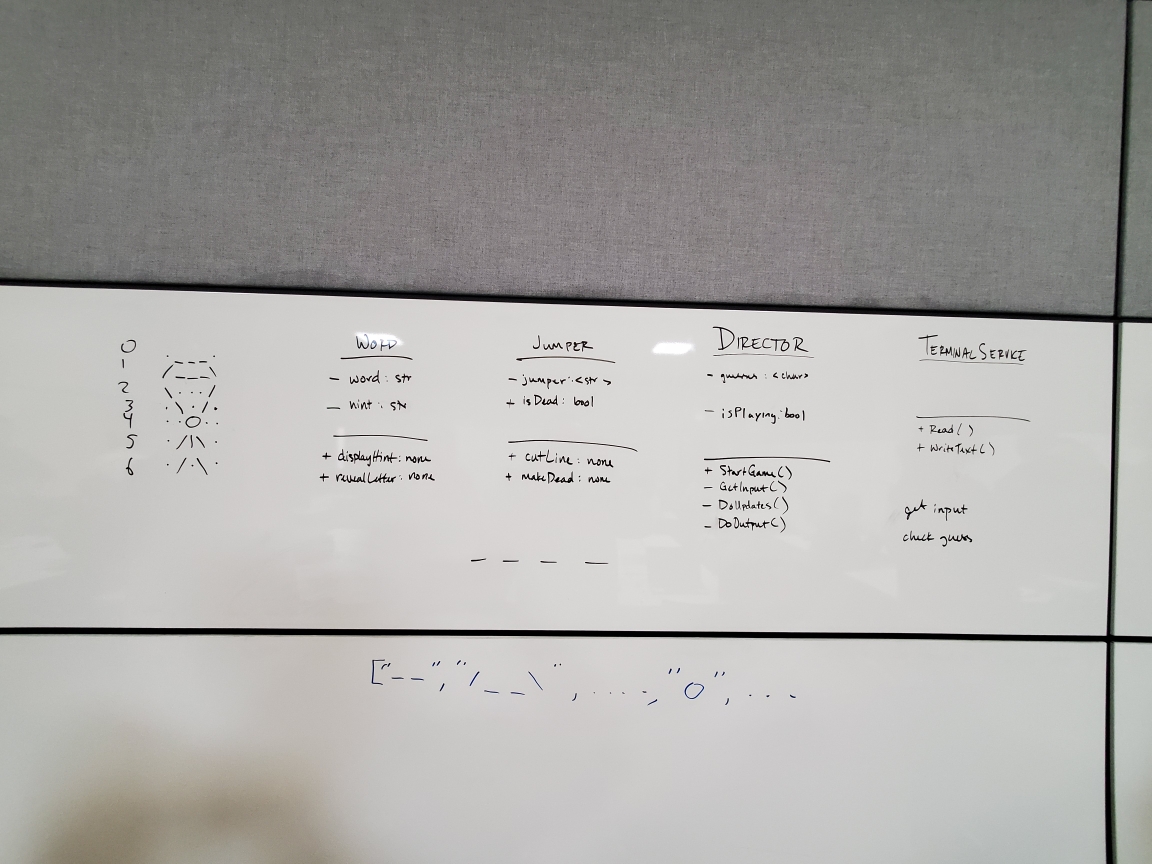 0
1
2
3
4
5
6
. _ _ _ .
/_ _ _\
\ . . . /
. \ . / .
. . O . .
. /|\ .
. / . \ .
WORD
- word : str
- hint : str
+ displayHint : none
+ revealLetter : none
JUMPER
- jumper : <str>
+ isDead : bool
+ cutLine : none
+ makeDead : none
DIRECTOR
- guesses : <char>
- isPlaying : bool
+ StartGame()
- GetInput()
- DoUpdates()
- DoOutput()
TERMINALSERVICE
+ Read()
+ WriteText()
get input
check guess
_ _ _ _
["_ _", "/_ _\", . . . ., "O", . . .